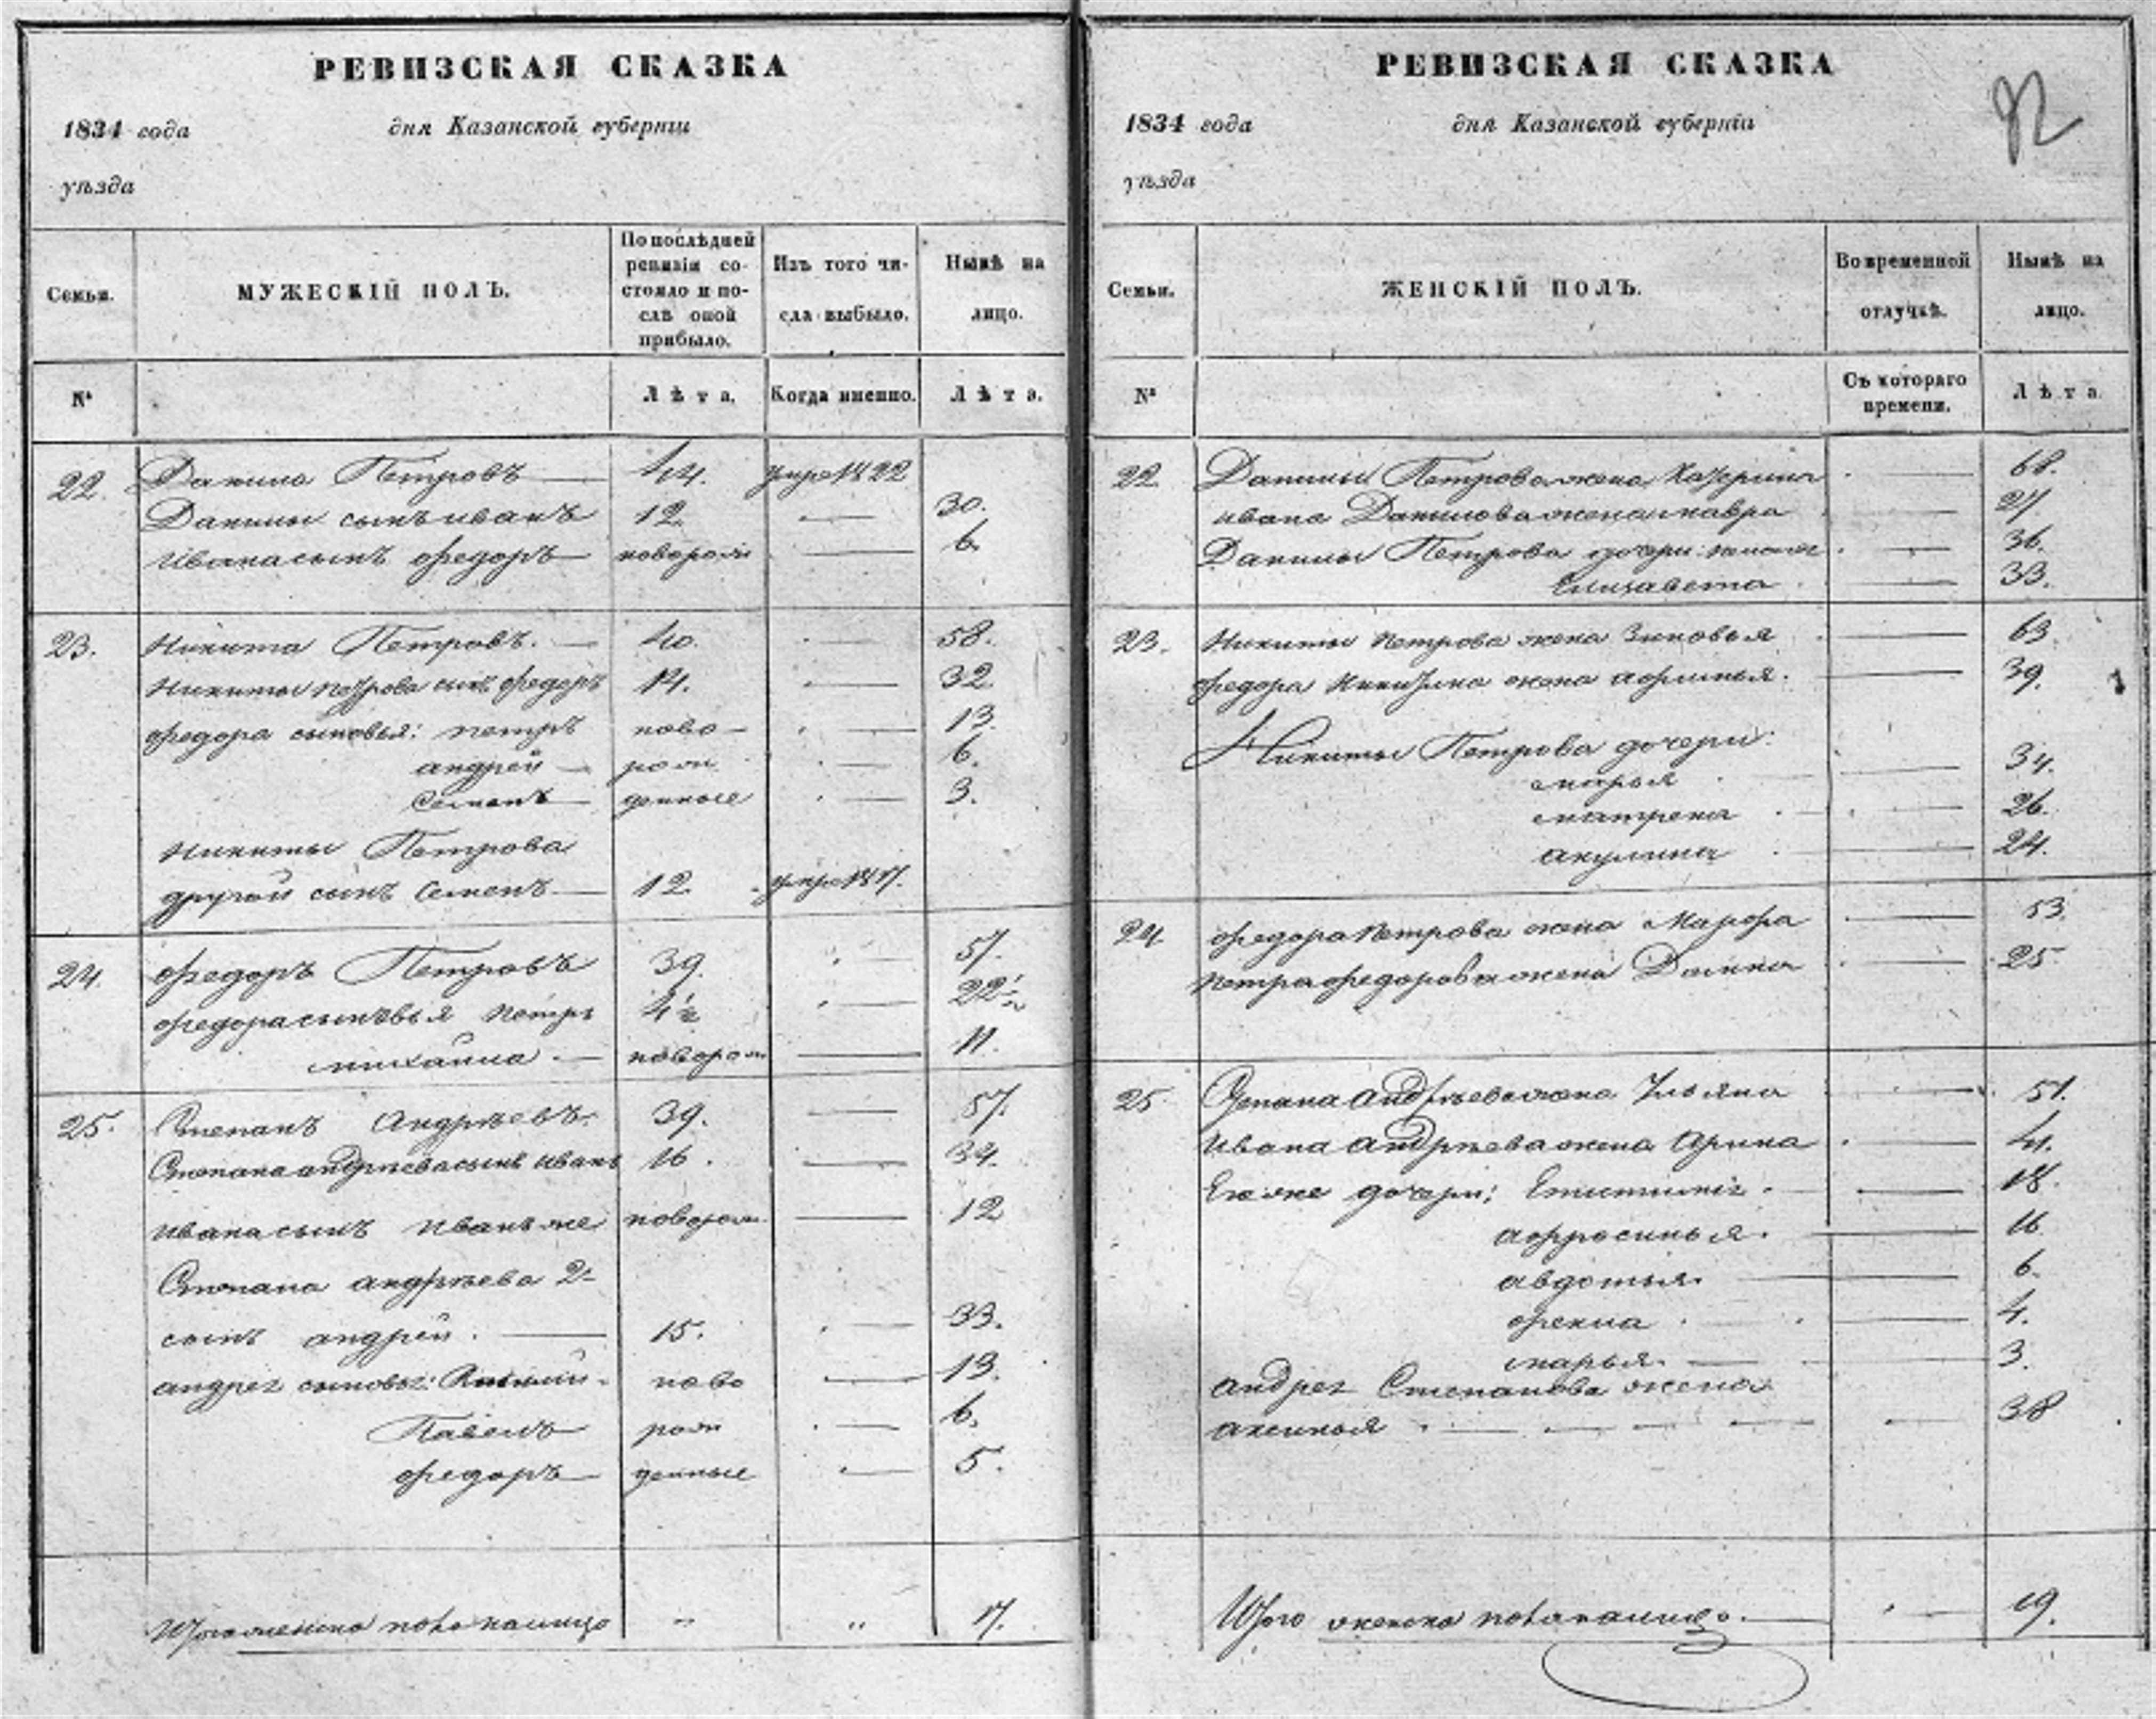 РЕВИЗСКАЯ СКАЗКА
1834 года дня Казанской губернiи
уѣзда
Семьи.
МУЖЕСКIЙ ПОЛЪ.
По послѣдней
ревизiи со-
стояло и по-
слѣ оной
прибыло.
Изъ того чи-
сла выбыло.
Нынѣ на
лицо.
№
Лѣта.
Когда именно.
Лѣта.
22. Данило Петровъ 44. умре 1822
Данилы сынъ иванъ 12. 30.
Ивана сынъ федоръ новорож 6.
23. Никита Петровъ. 40. 58.
Никиты петрова сынъ федоръ 14. 32
федора сыновья: петръ ново 13.
андрей рож 6.
Семенъ денные 3.
Никиты Петрова
другой сынъ Семенъ 12. умре 1817.
24. федоръ Петровъ 39. 57.
федора сыновья петръ 4½ 22½
михайла новорож 11.
25. Степанъ Андрѣевъ 39. 57.
Степана андрѣева сынъ иванъ 16. 34.
Ивана сынъ Иванъ же новорож 12
Степана андрѣева 2
сынъ андрей. 15. 33.
андрея сыновья: ново 13.
Павелъ рож 6.
федоръ денные 5.
Итого мужеска пола налицо 17.
РЕВИЗСКАЯ СКАЗКА
1834 года дня Казанской губернiи
уѣзда
Семьи.
ЖЕНСКIЙ ПОЛЪ.
Во временной
отлучкѣ.
Нынѣ на
лицо.
№
Съ котораго
времени.
Лѣта
22 Данилы Петрова жена Катерина 68.
ивана Данилова жена мавра 27.
Данилы Петрова дочери: 36.
Елизавета 33.
23. Никиты петрова жена Зиновья 63.
федора Никитина жена афимья. 39.
Никиты Петрова дочери:
марья 34.
матрена 26.
акулина 24.
24. федора петрова жена Марфа 53.
петра федорова жена Домна 25
25. Степана Андрѣева жена Ульяна 51.
Ивана Андрѣева жена Арина 41.
Ея же дочери: 18.
афросинья. 16
авдотья. 6.
фекла 4.
марья. 3.
андрея Степанова жена
аксинья 38
Итого женска пола налицо. 19.